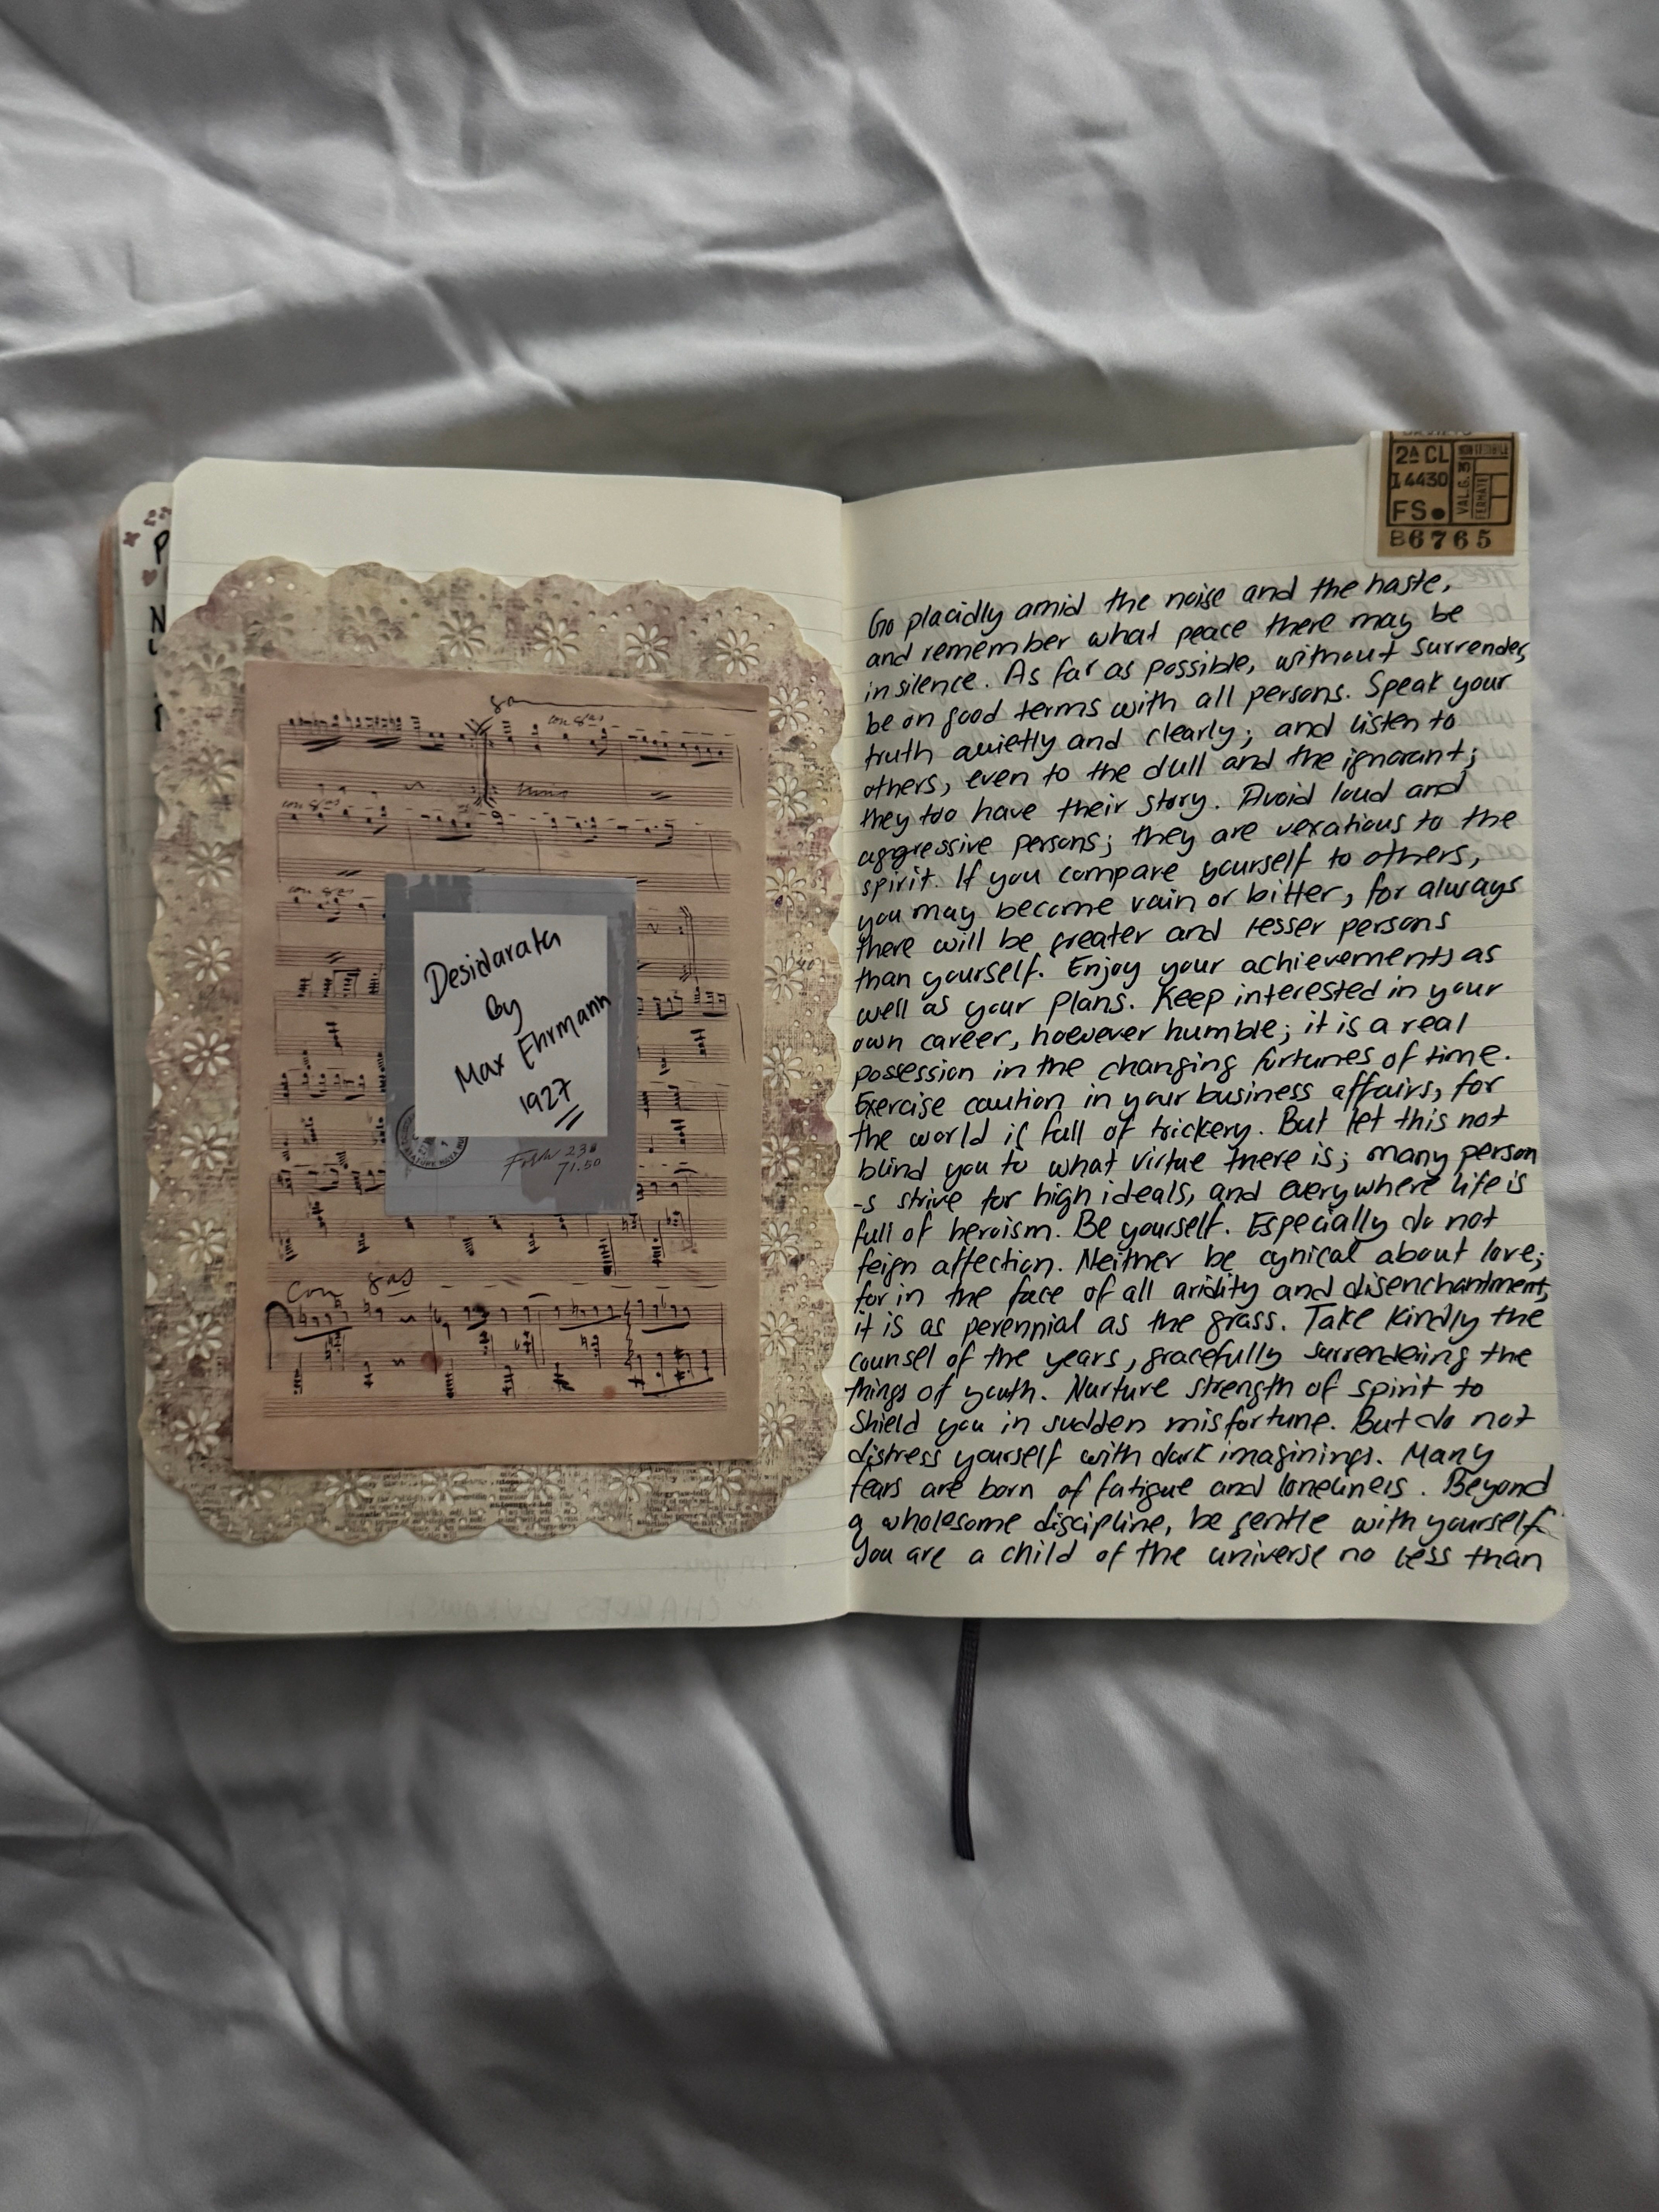 P
N
con 8as
con 8as
con 8as
Desidarata
By
Max Ehrmann
1927
71.50
Con 8as
2A CL
14430
FS.
VAL.G.3
B6765
Go placidly amid the noise and the haste,
and remember what peace there may be
in silence. As far as possible, without surrender,
be on good terms with all persons. Speak your
truth quietly and clearly; and listen to
others, even to the dull and the ignorant;
they too have their story. Avoid loud and
aggressive persons; they are vexatious to the
spirit. If you compare yourself to others,
you may become vain or bitter, for always
there will be greater and lesser persons
than yourself. Enjoy your achievements as
well as your plans. Keep interested in your
own career, however humble; it is a real
possession in the changing fortunes of time.
Exercise caution in your business affairs, for
the world is full of trickery. But let this not
blind you to what virtue there is; many person
-s strive for high ideals, and everywhere life is
full of heroism. Be yourself. Especially do not
feign affection. Neither be cynical about love;
for in the face of all aridity and disenchantment,
it is as perennial as the grass. Take kindly the
counsel of the years, gracefully surrendering the
things of youth. Nurture strength of spirit to
shield you in sudden misfortune. But do not
distress yourself with dark imaginings. Many
fears are born of fatigue and loneliness. Beyond
a wholesome discipline, be gentle with yourself
You are a child of the universe no less than